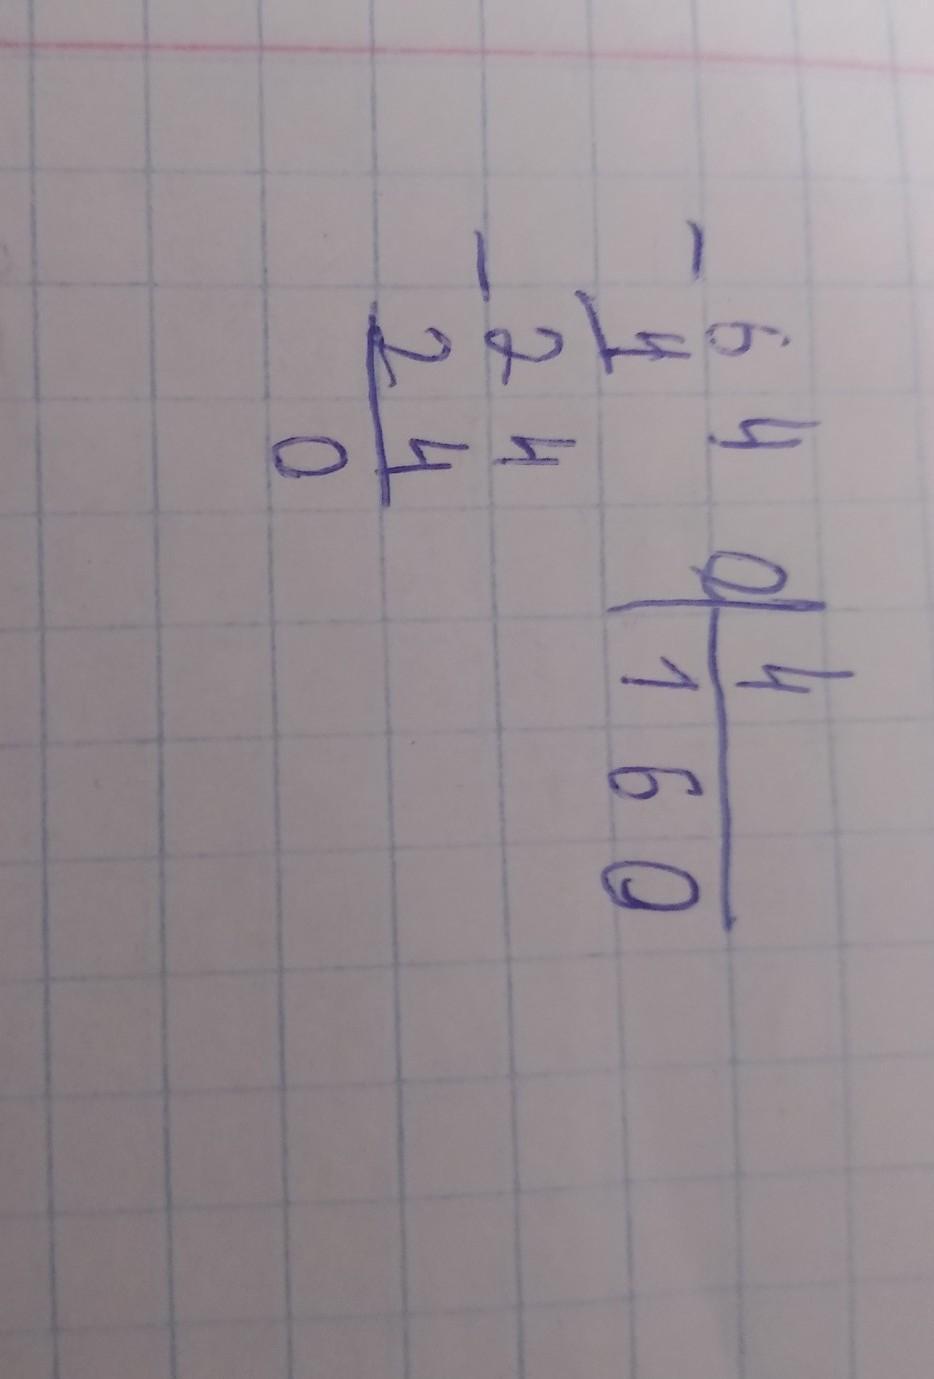 - 6 4 0 | 4
4 1 6 0
- 2 4
2 4
0